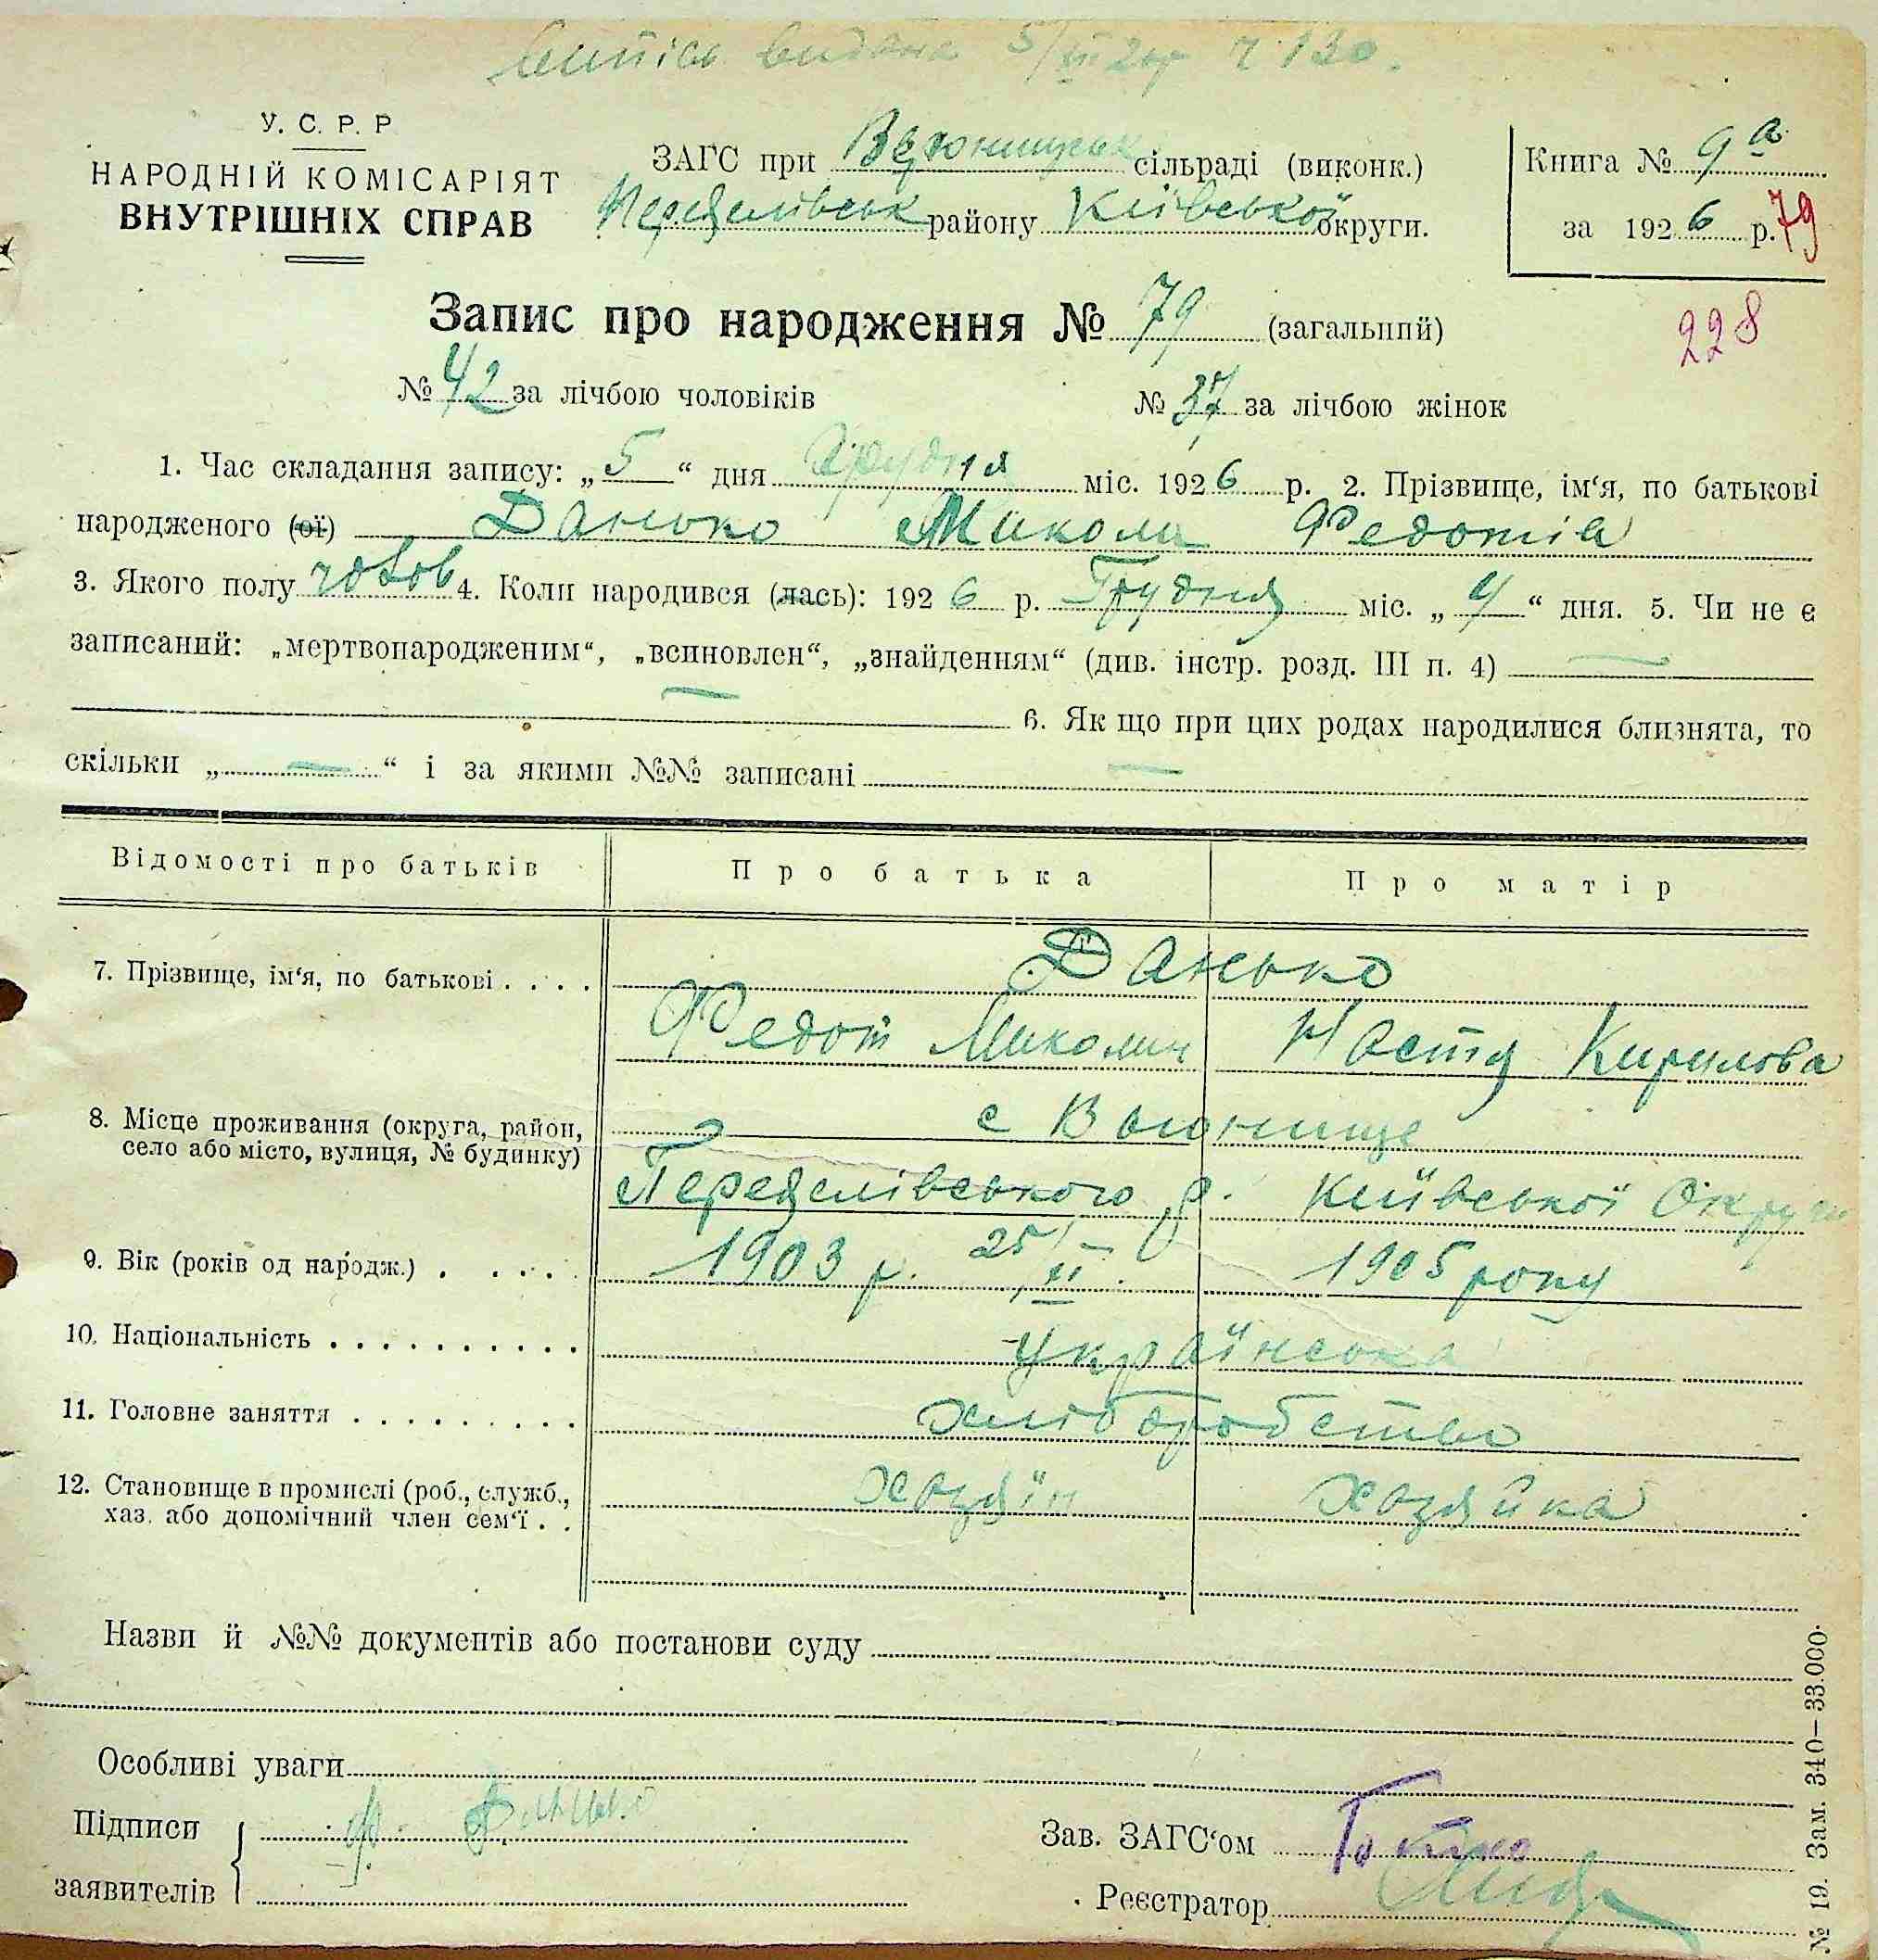 видана 5/VII 2 ч 130.
У. С. Р. Р
НАРОДНІЙ КОМІСАРІЯТ
ВНУТРІШНІХ СПРАВ
ЗАГС при сільраді (виконк.)
району Київської округи.
Книга № 9а
за 1926 р. 79
Запис про народження № 79 (загальний)
228
№ 42 за лічбою чоловіків № 37 за лічбою жінок
1. Час складання запису: „5“ дня Грудня міс. 1926 р. 2. Прізвище, ім‘я, по батькові
народженого (ої) Данько Микола Федотів
3. Якого полу чолов 4. Коли народився (лась): 1926 р. Грудня міс. „4“ дня. 5. Чи не є
записаний: „мертвонародженим“, „всиновлен“, „знайденням“ (див. інстр. розд. III п. 4) —
— 6. Як що при цих родах народилися близнята, то
скільки „ — “ і за якими №№ записані —
Відомості про батьків Про батька Про матір
7. Прізвище, ім‘я, по батькові . . . . Данько
Федот Миколич Настя Кирилова
8. Місце проживання (округа, район,
село або місто, вулиця, № будинку)
с Вьюнище
р. Київської Округи
9. Вік (років од народж.) . . . . . 1903 р. 25/II 1905 року
10. Національність . . . . . . . . . . Українська
11. Головне заняття . . . . . . . . . хліборобство
12. Становище в промислі (роб., служб.,
хаз. або допомічний член сем‘ї . .
хазяїн хазяйка
Назви й №№ документів або постанови суду
Особливі уваги
Підписи
заявителів
Ф. Данько
Зав. ЗАГС‘ом
Реєстратор
№ 19. Зам. 340—33.000.